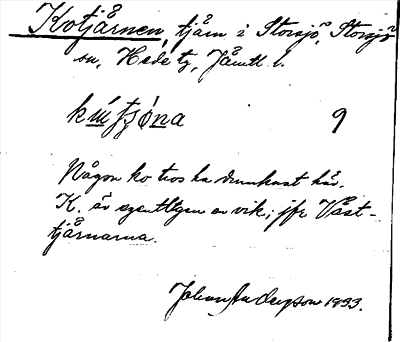 Kotjårnen, tjärn i Storsjö, Storsjö
sn, Hede tg, Jämtl. l.
9
Någon ko tros ha drunknat här.
K. är egentligen en vik; jfr Väst-
tjärnarna.
Johan Anderson 1933.